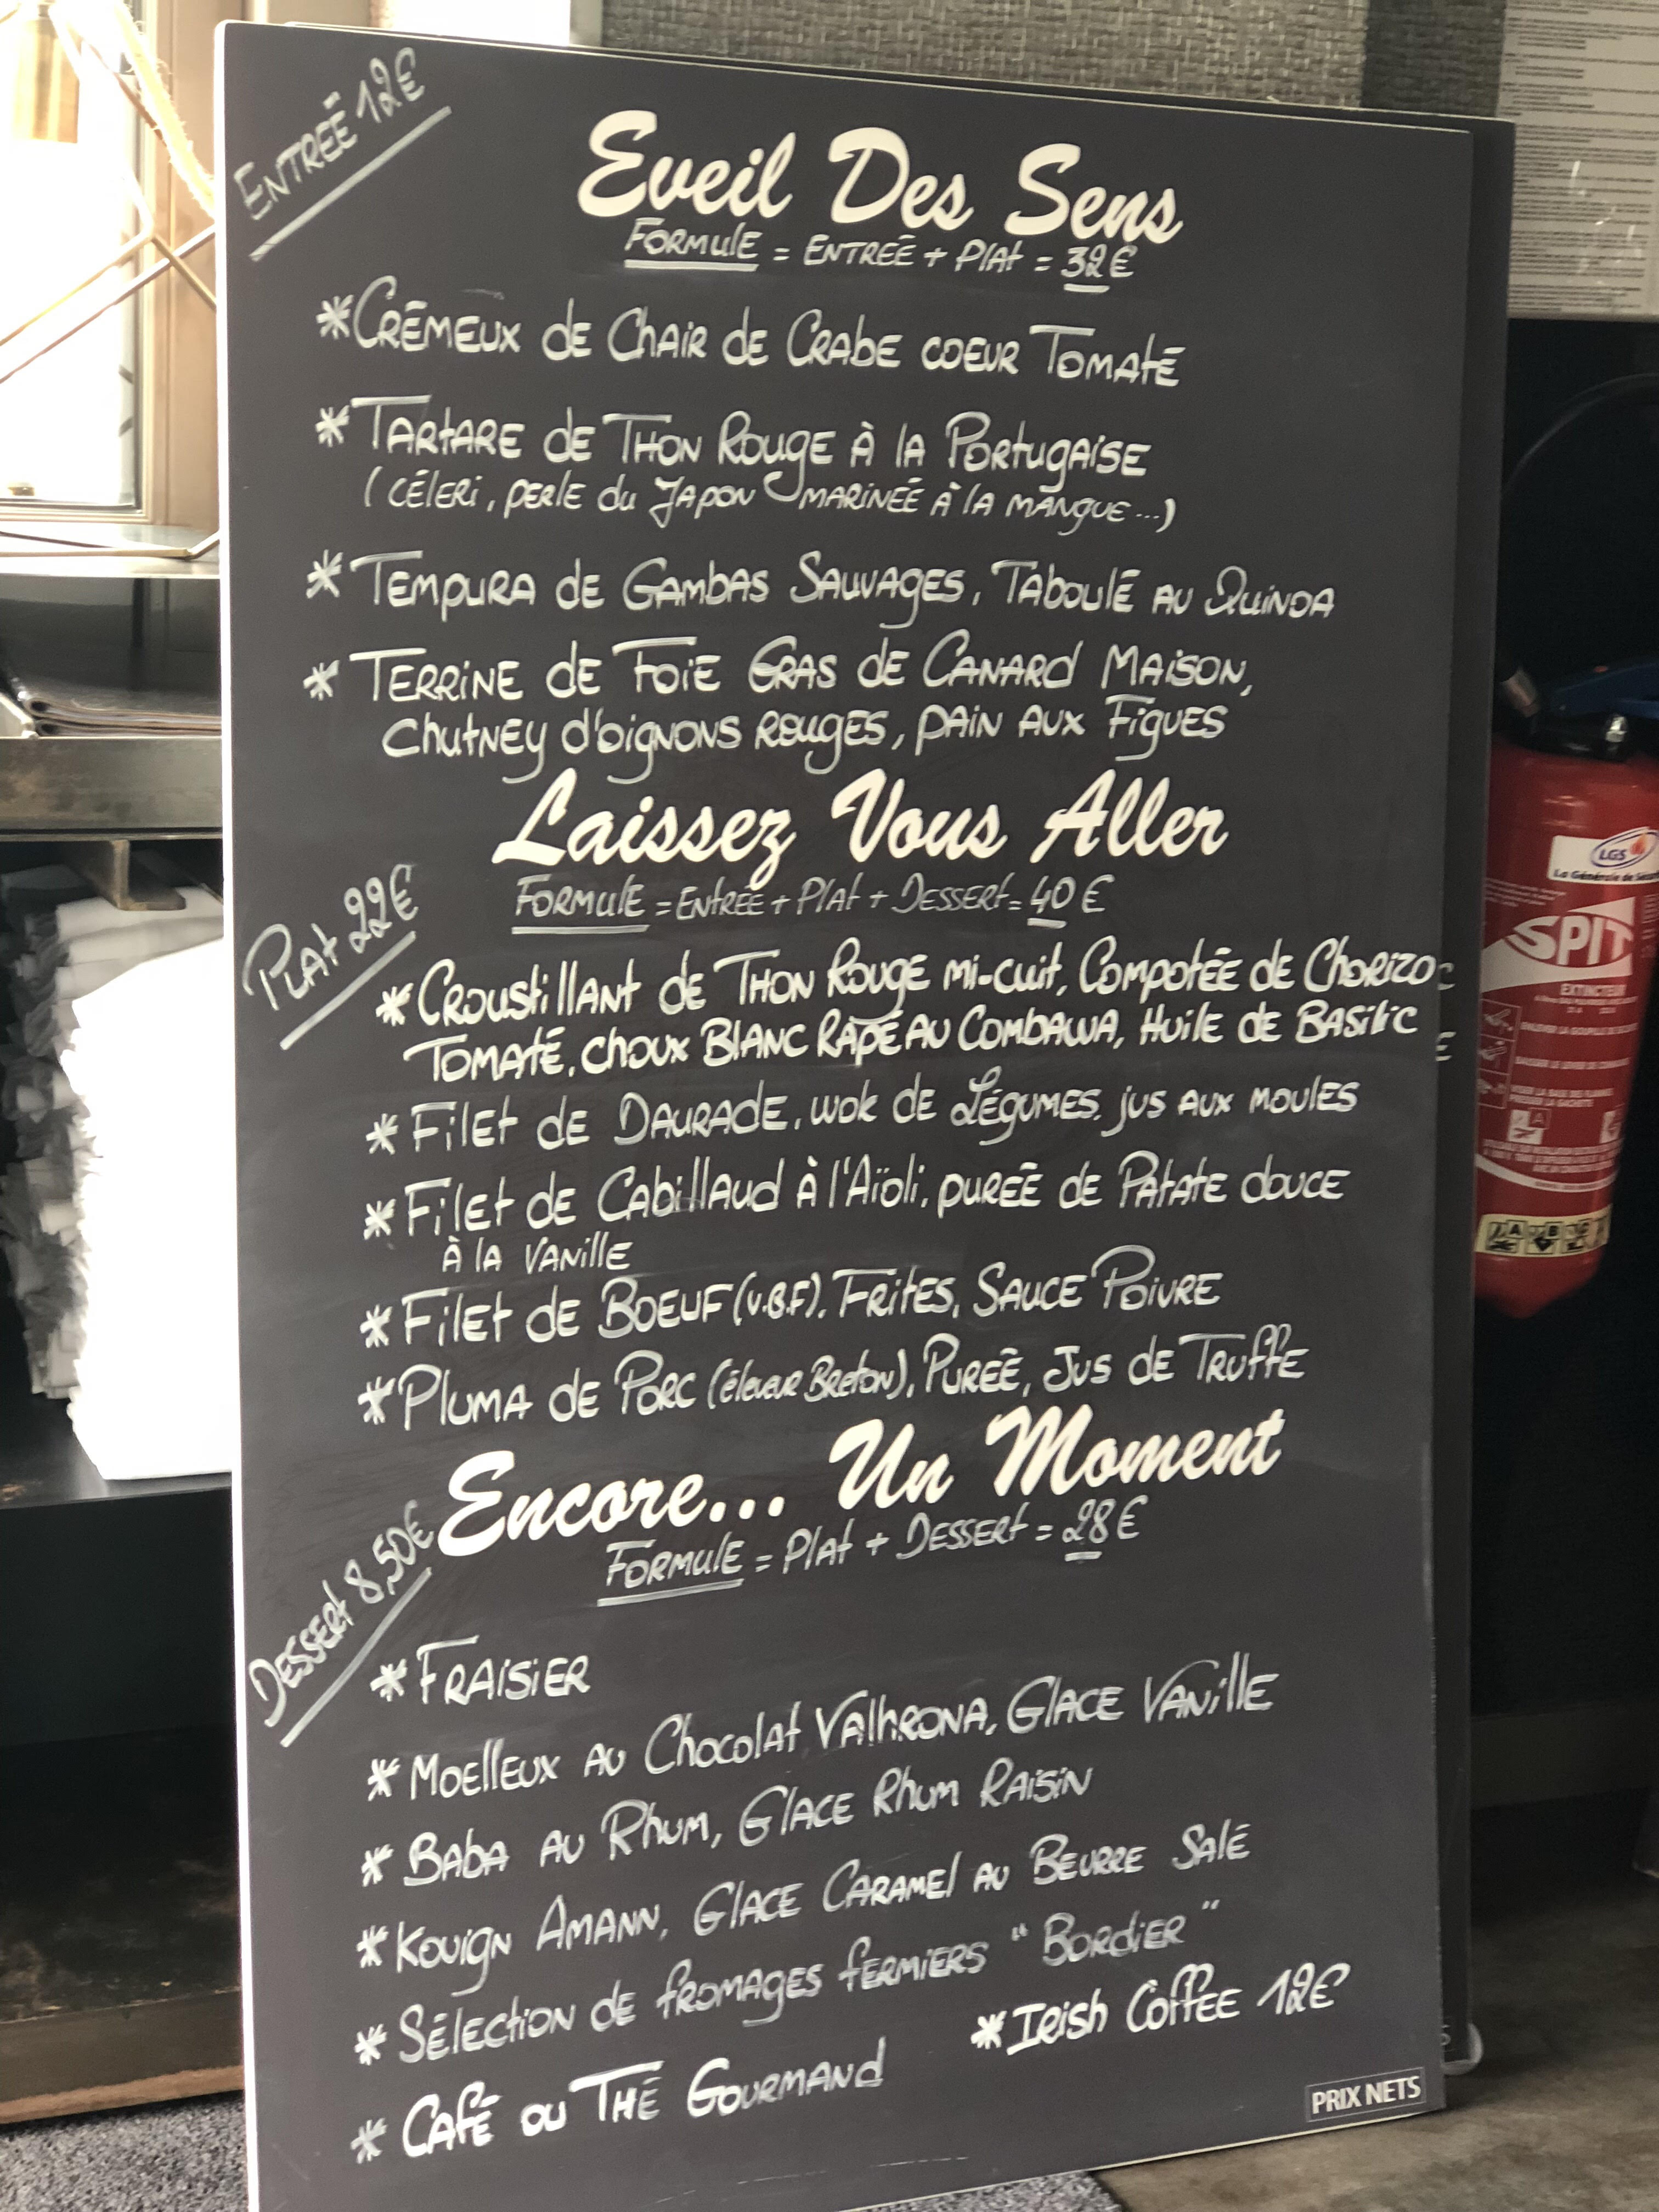 ENTREÉ 12€
Eveil Des Sens
FORMULE = ENTREÉ + Plat = 32€
*CRÉMEUX de Chair de Crabe COEUR TOMATÉ
*TARTARE de THON ROUGE À la PORTUGAISE
(CÉLERI, PERLE du JAPON MARINEÉ À la MANGUE...)
*TEMPURA de GAMBAS SAUVAGES, TABOULÉ AU QUINOA
*TERRINE de FOIE GRAS de CANARD MAISON,
Chutney d'oignons ROUGES, PAIN AUX FIGUES
Laissez Vous Aller
FORMULE = ENTREÉ + Plat + DESSERT = 40€
PLAT 22€
*CROUSTILLANT de THON ROUGE MI-CUIT, COMPOTÉE de CHORIZO
TOMATÉ, choux BLANC RAPÉ AU COMBAWA, HUILE de BASILIC
*FILET de DAURADE, WOK de LÉGUMES, JUS AUX MOULES
*FILET de CABILLAUD À l'AÏOLI, PUREÉ de PATATE DOUCE
À la VANILLE
*FILET de BOEUF (V.B.F), FRITES, SAUCE POIVRE
*PLUMA de PORC (éleveur Breton), PUREÉ, JUS de TRUFFE
Encore... Un Moment
FORMULE = Plat + DESSERT = 28€
DESSERT 8,50€
*FRAISIER
*MOELLEUX AU Chocolat VALHRONA, GLACE VANILLE
*BABA AU RHUM, GLACE RHUM RAISIN
*KOUIGN AMANN, GLACE CARAMEL AU BEURRE SALÉ
*SÉLECTION de FROMAGES FERMIERS "BORDIER"
*IRISH COFFEE 12€
*CAFÉ OU THÉ GOURMAND
PRIX NETS
LGS
SPIT
EXTINCTEUR
A B